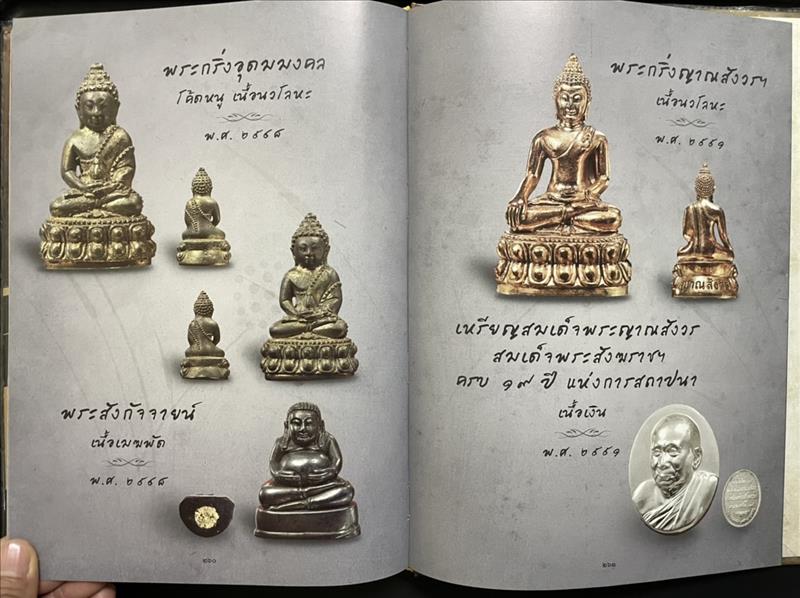 พระกริ่งอุดมมงคล
โค้ดหนู เนื้อนวโลหะ
พ.ศ. ๒๕๕๘
พระสังกัจจายน์
เนื้อเมฆพัด
พ.ศ. ๒๕๕๘
๒๖๐
พระกริ่งญาณสังวรฯ
เนื้อนวโลหะ
พ.ศ. ๒๕๕๑
ญาณสังวร
เหรียญสมเด็จพระญาณสังวร
สมเด็จพระสังฆราชฯ
ครบ ๑๙ ปี แห่งการสถาปนา
เนื้อเงิน
พ.ศ. ๒๕๕๑
๒๖๑